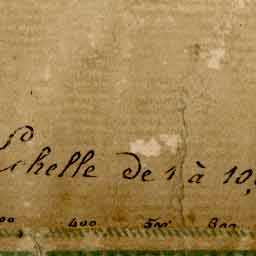 Echelle de 1 à 10,
00 400 500 600